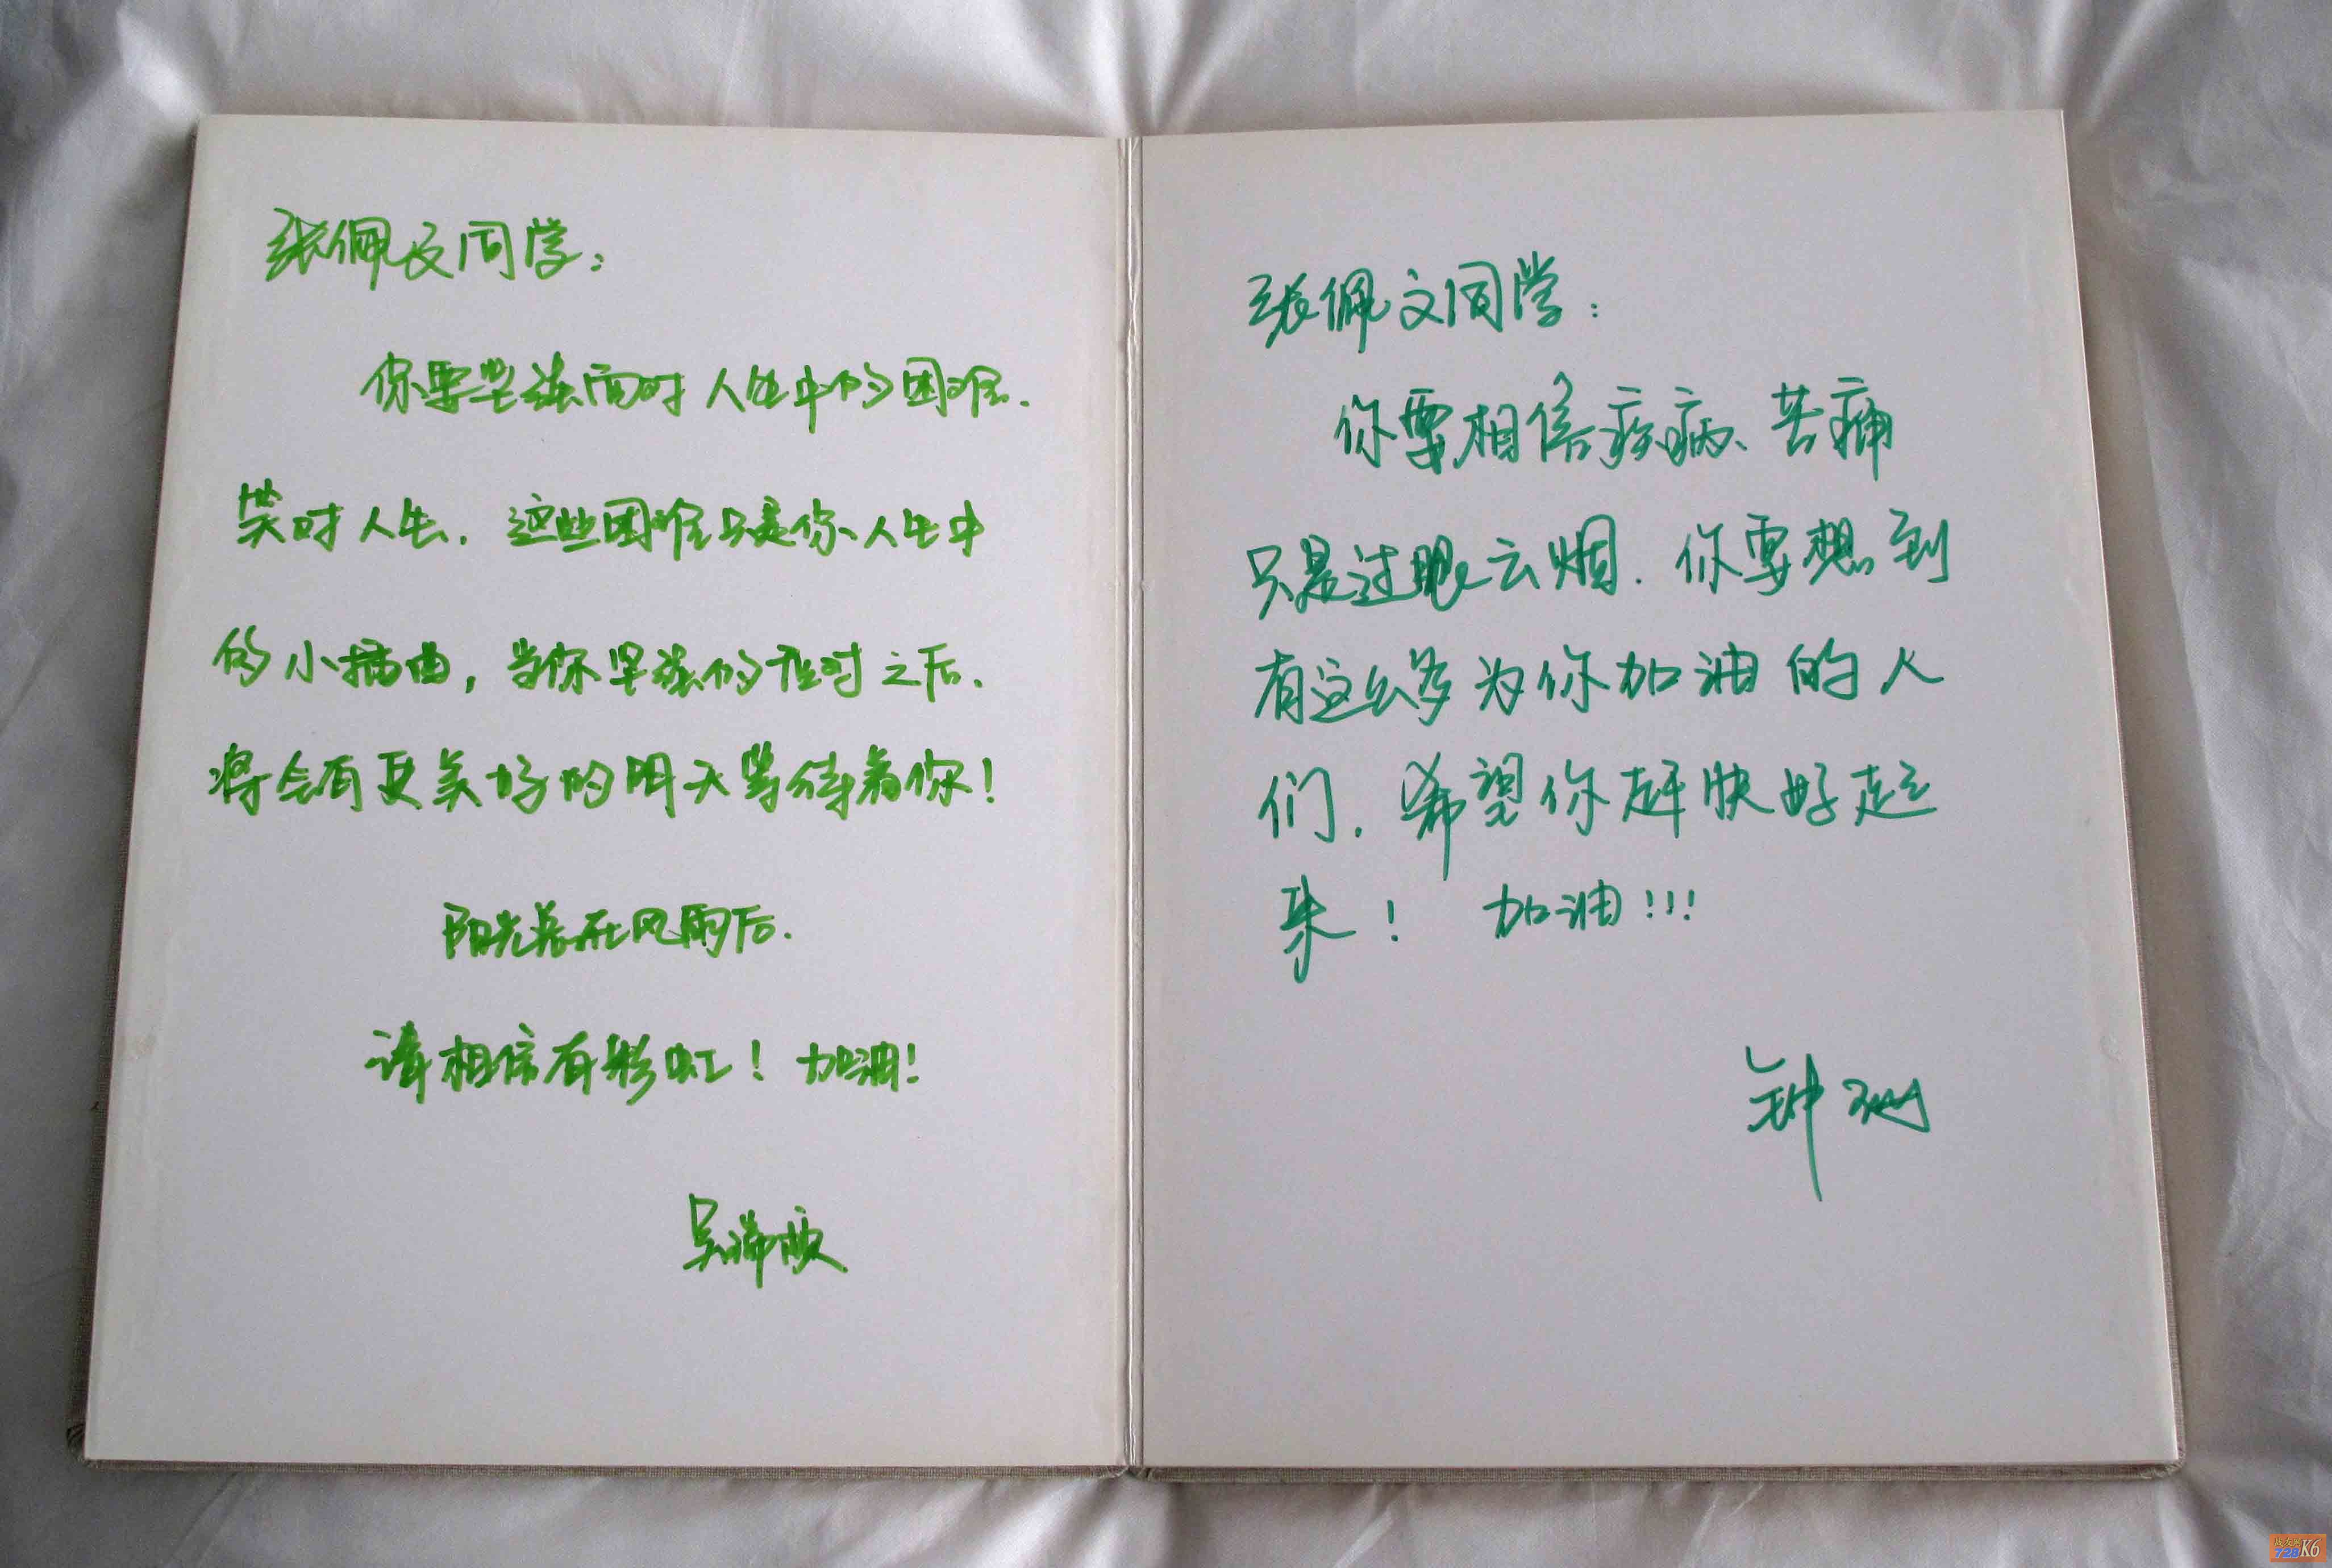 张佩文同学：
你要坚强面对人生中的困难.
笑对人生. 这些困难只是你人生中
的小插曲, 当你坚强的应对之后.
将会有更美好的明天等待着你!
阳光总在风雨后.
请相信有彩虹! 加油!
张佩文同学：
你要相信疾病、苦痛
只是过眼云烟. 你要想到
有这么多为你加油的人
们. 希望你赶快好起
来! 加油!!!
钟珊
728K6